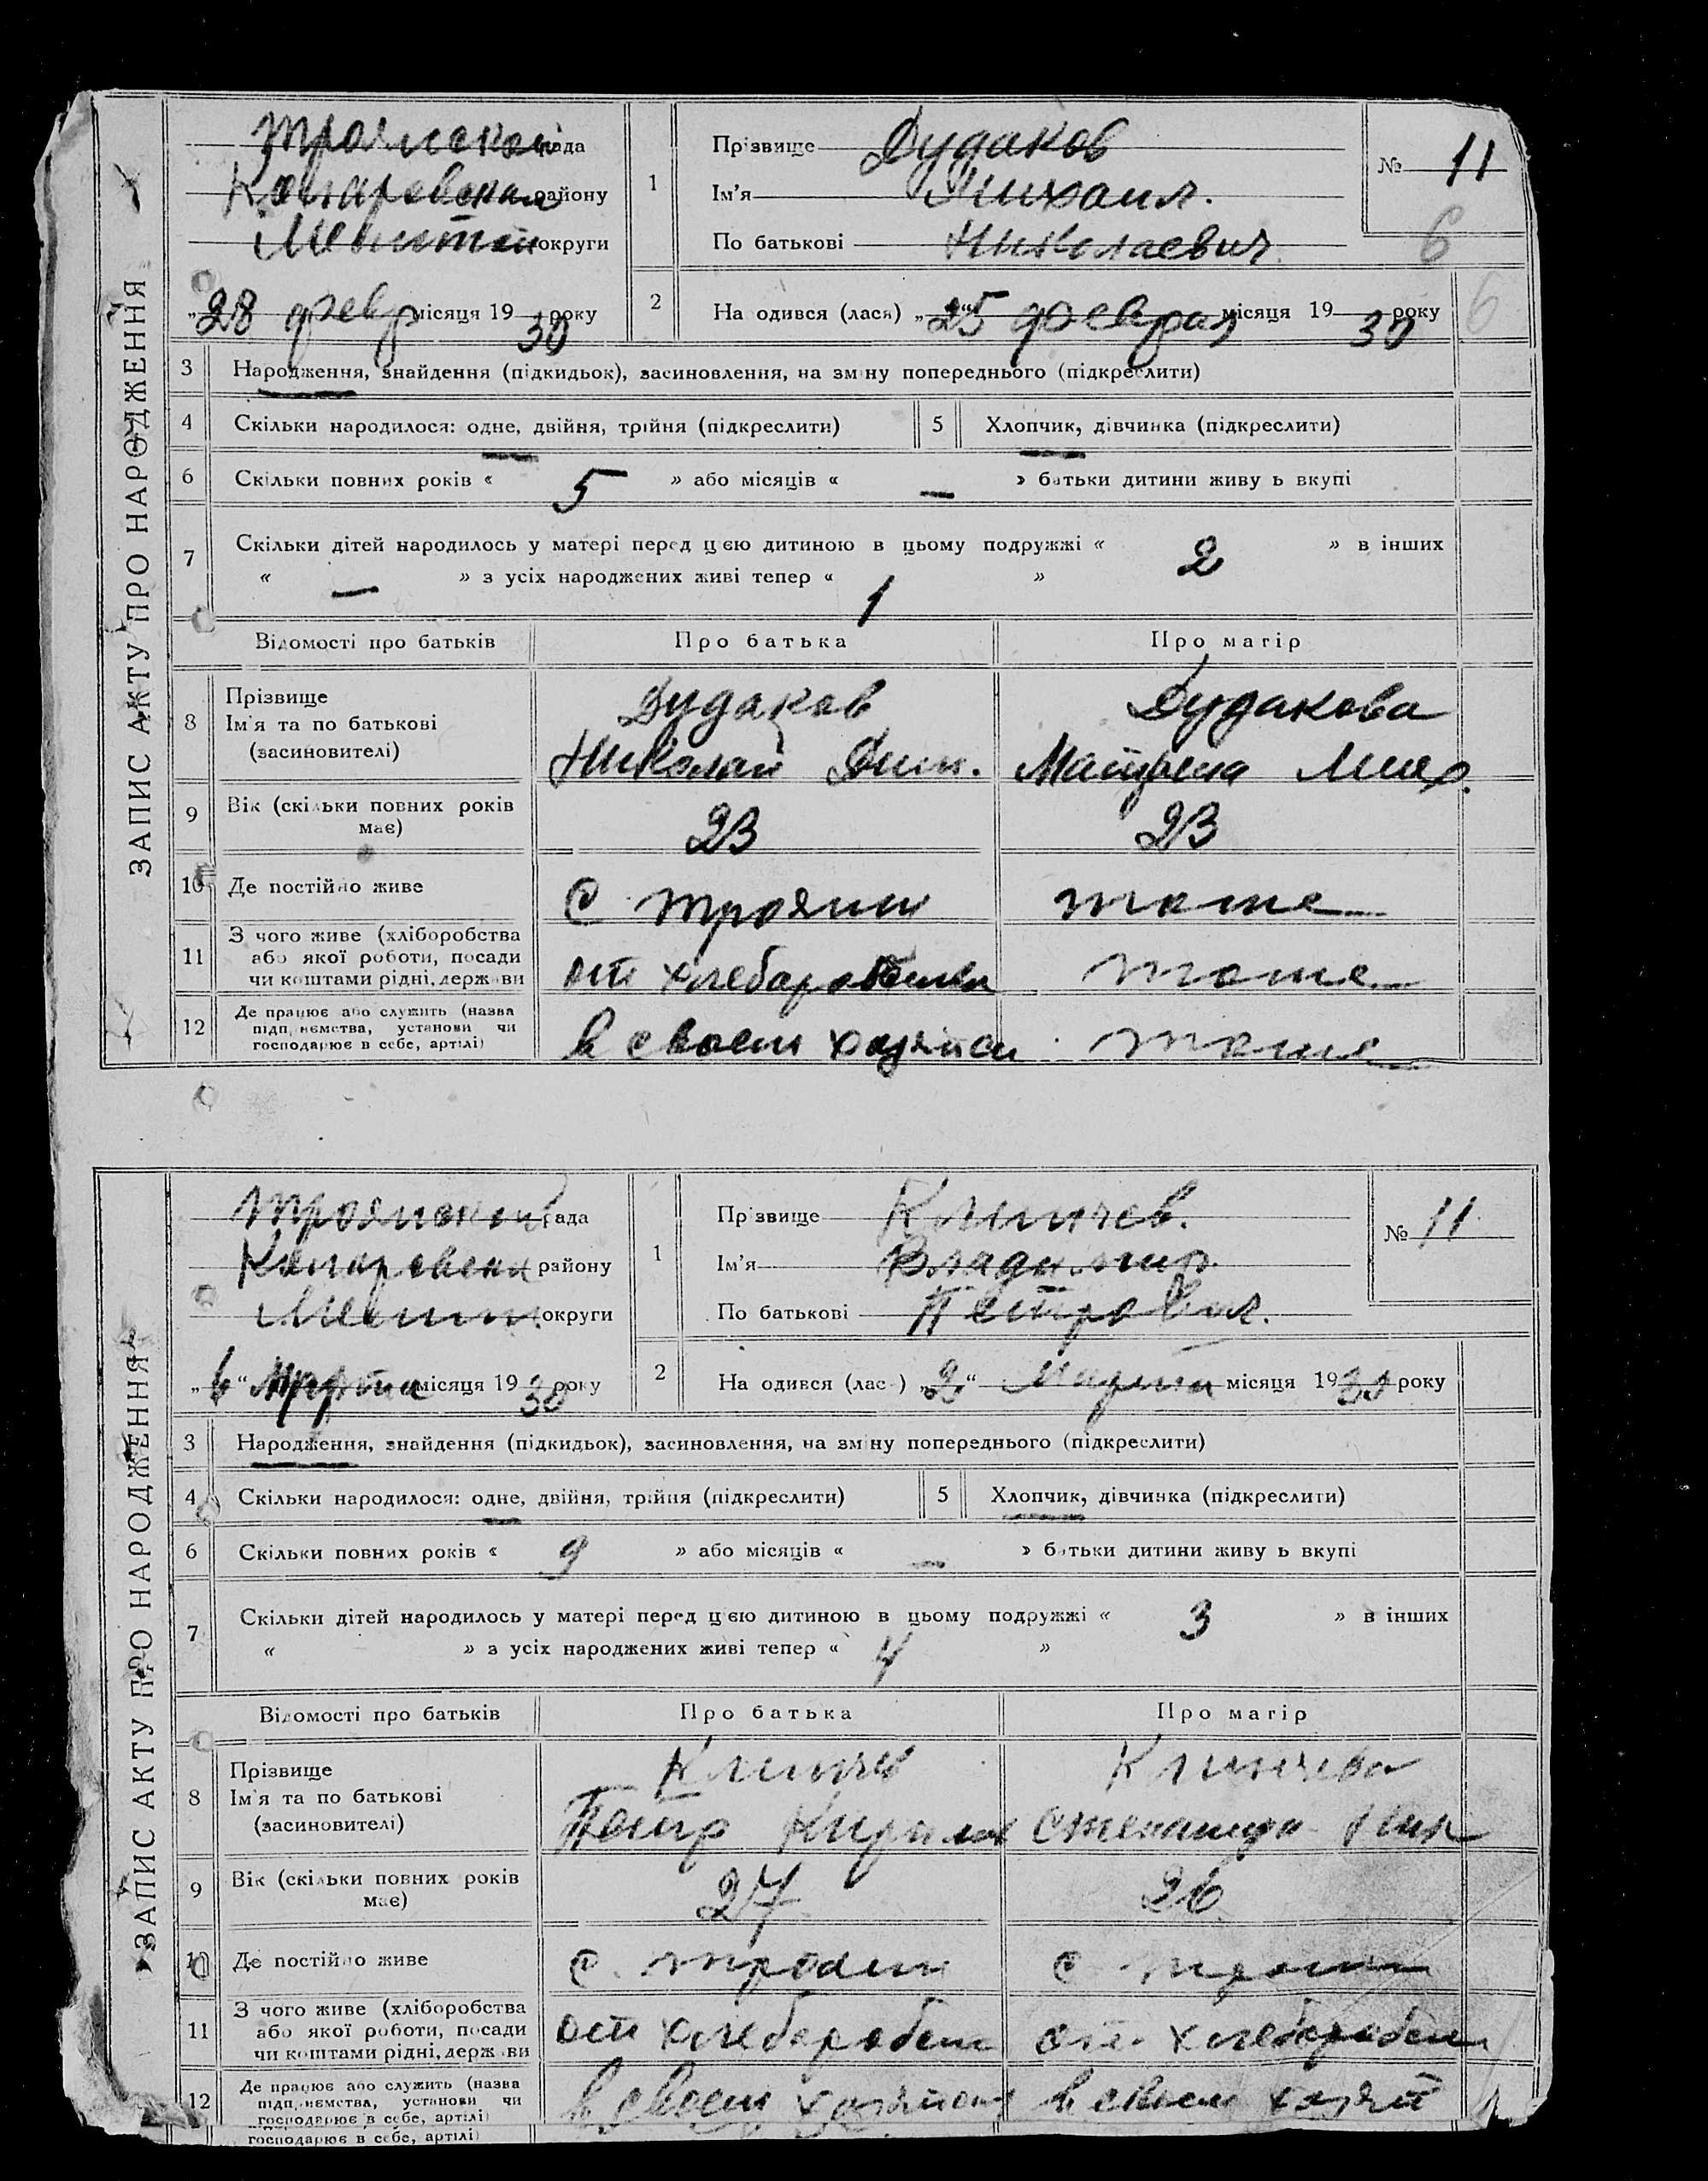 ЗАПИС АКТУ ПРО НАРОДЖЕННЯ
Троянской рада
району
Мелитоп округи
„28 февр місяця 1930 року
1
Прізвище Дудаков
Ім'я Михаил.
По батькові Николаевич
№ 11
6
6
2 На одився (лася) „25“ феврал місяця 1930 року
3 Народження, знайдення (підкидьок), засиновлення, на зміну попереднього (підкреслити)
4 Скільки народилося: одне, двійня, трійня (підкреслити)
5 Хлопчик, дівчинка (підкреслити)
6 Скільки повних років « 5 » або місяців « — » батьки дитини живу ь вкупі
7 Скільки дітей народилось у матері перед цією дитиною в цьому подружжі « 2 » в інших
« — » з усіх народжених живі тепер « 1 »
Відомості про батьків Про батька Про матір
8 Прізвище
Ім'я та по батькові
(засиновителі)
Дудаков
Николай Дим.
Дудакова
Матрена Мих.
9 Вік (скільки повних років
має)
23 23
10 Де постійно живе с Трояни тоже
11 З чого живе (хліборобства
або якої роботи, посади
чи коштами рідні, держави
от тоже
12 Де працює або служить (назва
підприємства, установи чи
господарює в себе, артілі)
в своем тоже
ЗАПИС АКТУ ПРО НАРОДЖЕННЯ
рада
району
округи
„6“ Марта місяця 1930 року
1
Прізвище
Ім'я Владимир
По батькові Петрович.
№ 11
2 На одився (лас ) „2“ Марта місяця 1930 року
3 Народження, знайдення (підкидьок), засиновлення, на зміну попереднього (підкреслити)
4 Скільки народилося: одне, двійня, трійня (підкреслити)
5 Хлопчик, дівчинка (підкреслити)
6 Скільки повних років « 9 » або місяців « — » батьки дитини живу ь вкупі
7 Скільки дітей народилось у матері перед цією дитиною в цьому подружжі « 3 » в інших
« » з усіх народжених живі тепер « 4 »
Відомості про батьків Про батька Про матір
8 Прізвище
Ім'я та по батькові
(засиновителі)
Петр
9 Вік (скільки повних років
має)
27 26
10 Де постійно живе с. Трояни с Трояни
11 З чого живе (хліборобства
або якої роботи, посади
чи коштами рідні, держави
от хлеборобст от хлеборобст
12 Де працює або служить (назва
підприємства, установи чи
господарює в себе, артілі)
в своем в своем
господарює в себе, артілі)